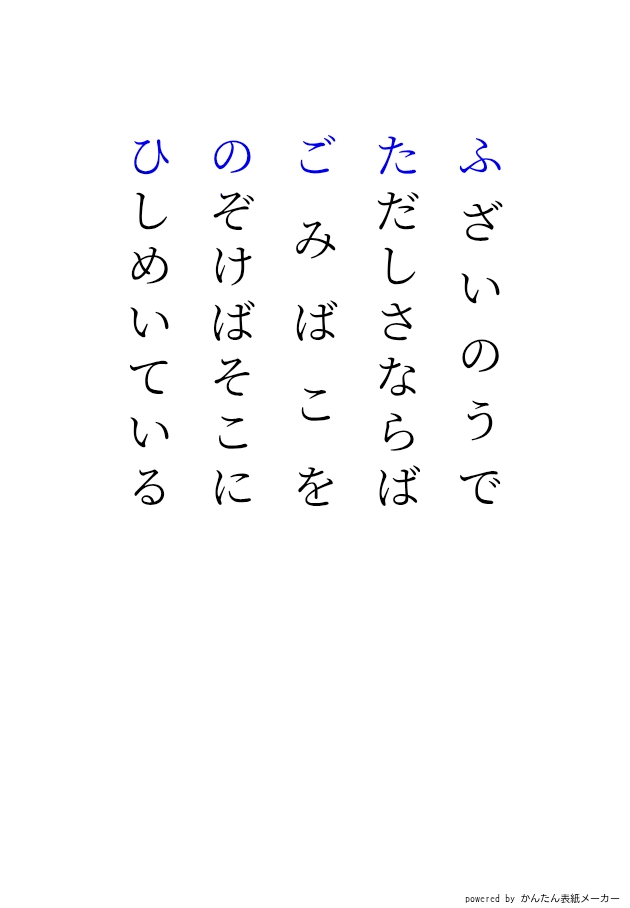 ふざいのうで
ただしさならば
ごみばこを
のぞけばそこに
ひしめいている
powered by かんたん表紙メーカー